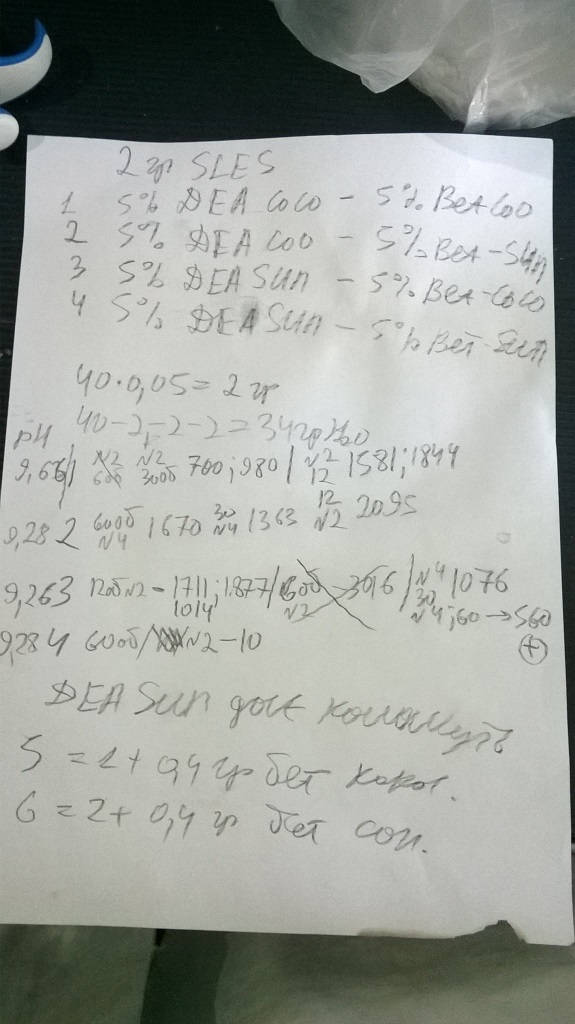 2 гр SLES
1 5% DEA COCO - 5% Bet COO
2 5% DEA COO - 5% Bet-SUn
3 5% DEA SUn - 5% Bet-COCO
4 5% DEA SUn - 5% Bet-Sun
40·0,05 = 2 гр
40-2-2-2 = 34 гр H2O
pH
9,66 / 1 N2 300б 700; 980 / N2 12 1581; 1844
9,28 2 60об N4 1670 30 N4 1363 12 N2 2095
9,26 3 12об N2 - 1711; 1877 / 60об N2 / N4 1076
1014 30 N4; 60 → 560
9,28 4 60об / N2 - 10 +
DEA Sun дает
5 = 1 + 0,4 гр бет кокос.
6 = 2 + 0,4 гр бет